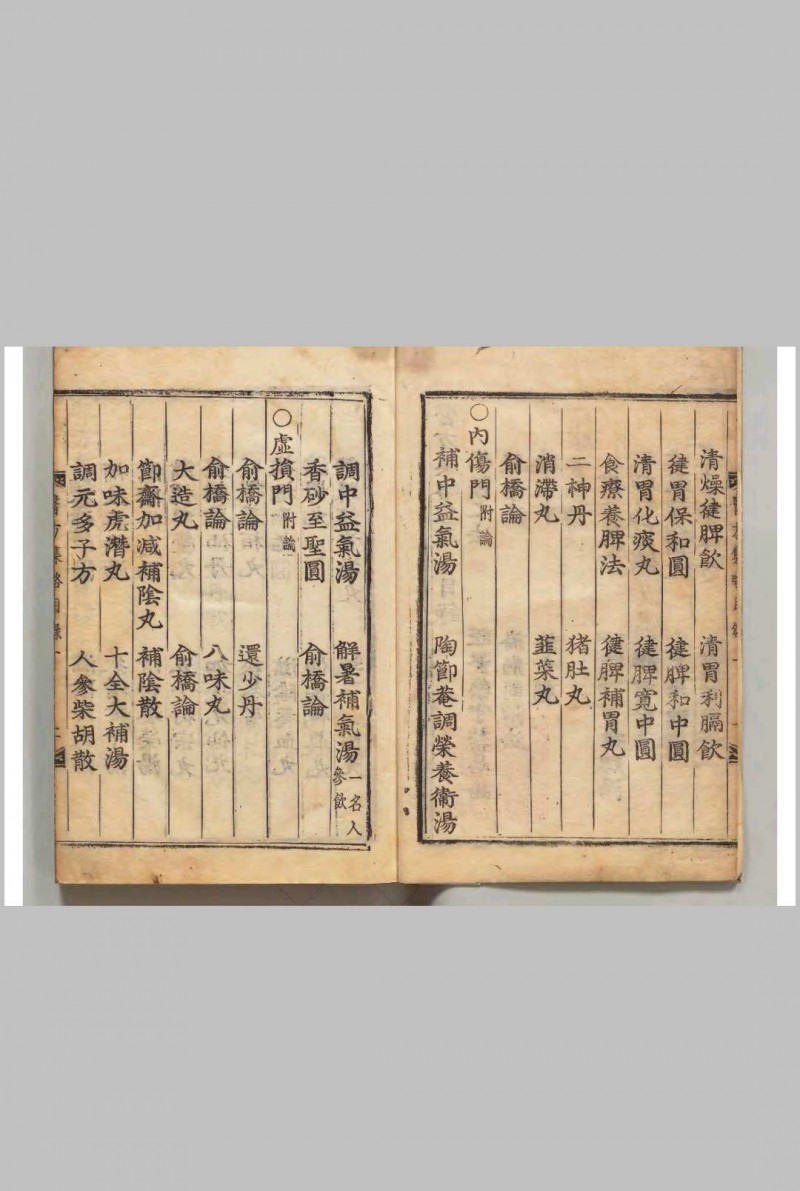 清燥健脾飲　清胃利膈飲
健胃保和圓　健脾和中圓
清胃化痰丸　健脾寬中圓
食療養脾法　健脾補胃丸
二神丹　猪肚丸
消滯丸　韮菜丸
俞橋論
○內傷門附論
補中益氣湯　陶節菴調榮養衛湯
調中益氣湯　解暑補氣湯一名人參飲
香砂至聖圓　俞橋論
○虛損門附論
俞橋論　還少丹
俞橋論　八味丸
大造丸　俞橋論
節齋加減補陰丸　補陰散
加味虎潛丸　十全大補湯
調元多子方　人參柴胡散
醫方集略目錄